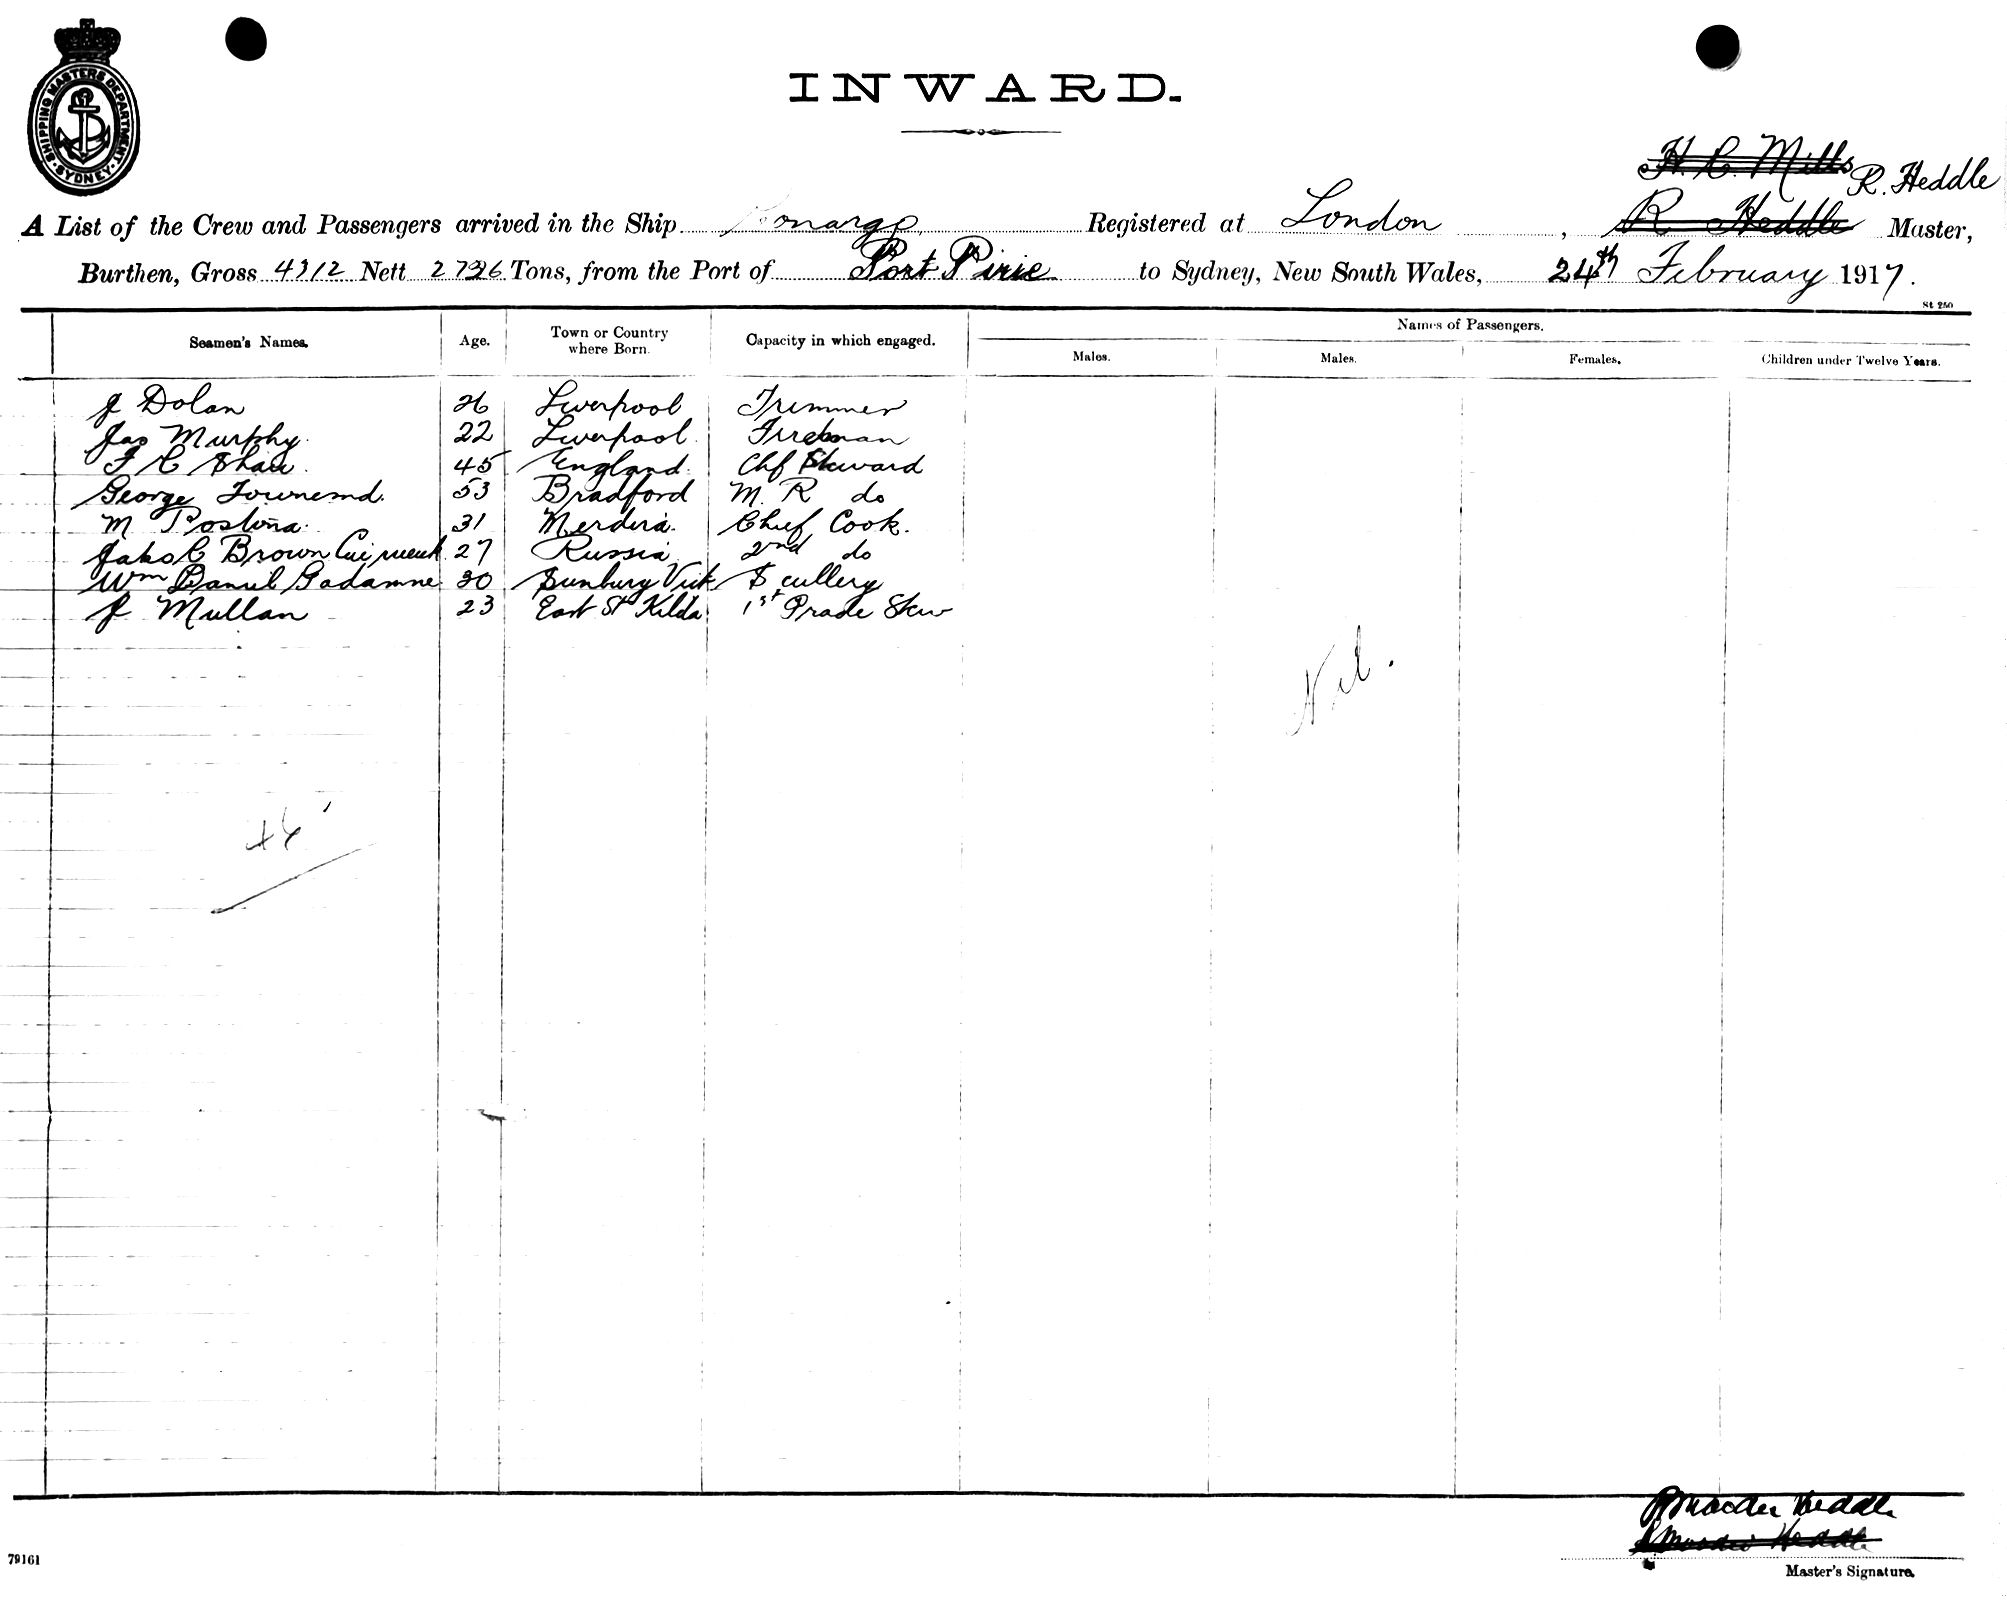 SHIPPING MASTERS DEPARTMENT
SYDNEY
INWARD.
H. C. Mills
R. Heddle
A List of the Crew and Passengers arrived in the Ship Registered at London, R Heddle Master,
Burthen, Gross 4312 Nett Tons, from the Port of Port Pirie to Sydney, New South Wales, 24th February 1917.
St 250
Seamen's Names. Age. Town or Country where Born. Capacity in which engaged. Names of Passengers.
Males. Males. Females. Children under Twelve Years.
J Dolan 26 Liverpool Trimmer
Jas Murphy 22 Liverpool Fireman
F C Shaw 45 England Chf Steward
George Townemd 53 Bradford M. R do
M 31 Chief Cook.
Brown 27 Russia 2nd do
Wm Daniel 30 Sunbury Vict Scullery
J Mullan 23 East St Kilda 1st Stew
Nil.
46
Heddle
Heddle
79161
Master's Signature.